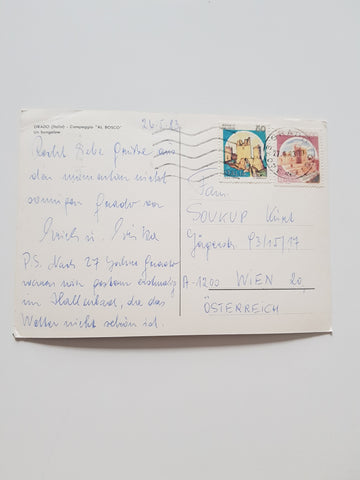 GRADO (Italia) - Campeggio "AL BOSCO"
Un bungalow
26.5.83
Recht liebe Grüße aus
dem momentan nicht
sonnigen Grado von
Erich u. Erika
P.S. Nach 27 Jahren Grado
waren wir gestern erstmalig
im Hallenbad, da das
Wetter nicht schön ist.
Fam.
SOUKUP Kurt
Jägerstr. 93/15/17
A-1200 WIEN 20,
ÖSTERREICH